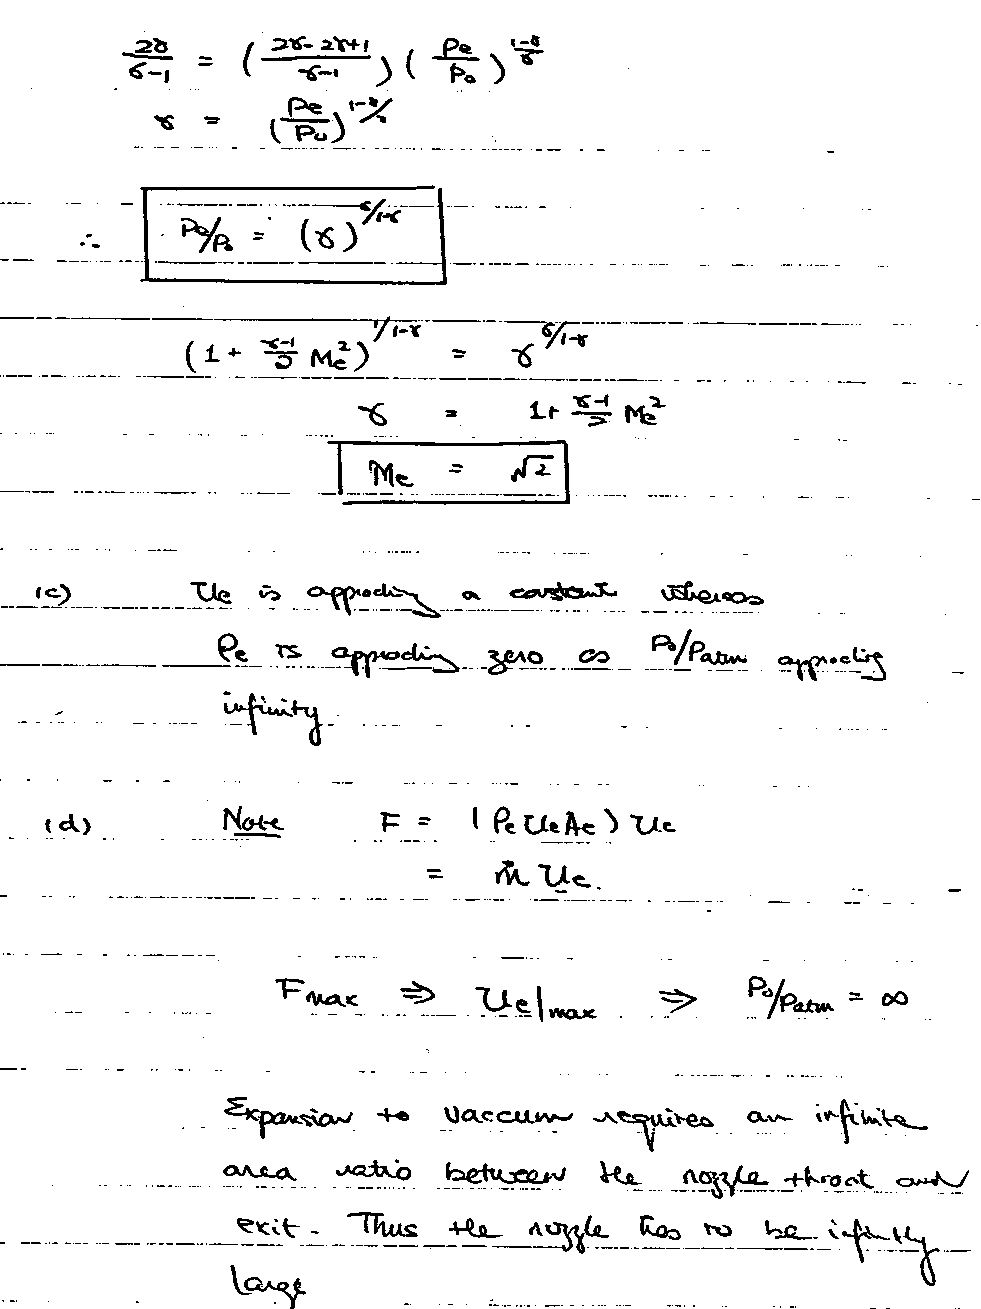 2γ/γ-1 = (2γ-2γ+1/γ-1) (Pe/Po)^1-γ/γ
γ = (Pe/Po)^1-γ/γ
∴ Pe/Po = (γ)^γ/1-γ
(1 + γ-1/2 Me²)^γ/1-γ = γ^γ/1-γ
γ = 1+ γ-1/2 Me²
Me = √2
(c) Ue is approching a constant whereas
ρe is approching zero as Po/Patm approching
infinity.
(d) Note F = (ρe Ue Ae) Ue
= ṁ Ue.
Fmax ⇒ Ue|max ⇒ Po/Patm = ∞
Expansion to vaccum requires an infinite
area ratio between the nozzle throat and
exit. Thus the nozzle has to be infintly
large